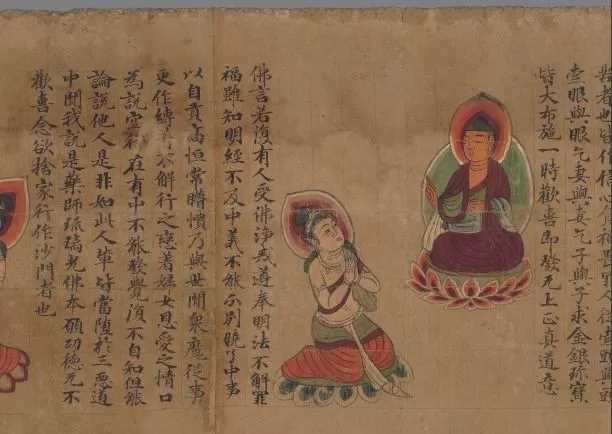 索眼與眼乞妻與妻乞子與子求金銀珎寶
皆大布施一時歡喜即發无上正真道意
佛言若復有人受佛淨戒遵奉明法不解罪
福雖知明經不及中義不能分別曉了中事
以自貢高恒常瞋憒乃與世間衆魔從事
更作縛著不解行之戀著婦女恩愛之情口
為說空行在有中不能發覺復不自知但能
論說他人是非如此人輩皆當墮於三惡道
中聞我說是藥師琉璃光佛本願功德无不
歡喜念欲捨家行作沙門者也